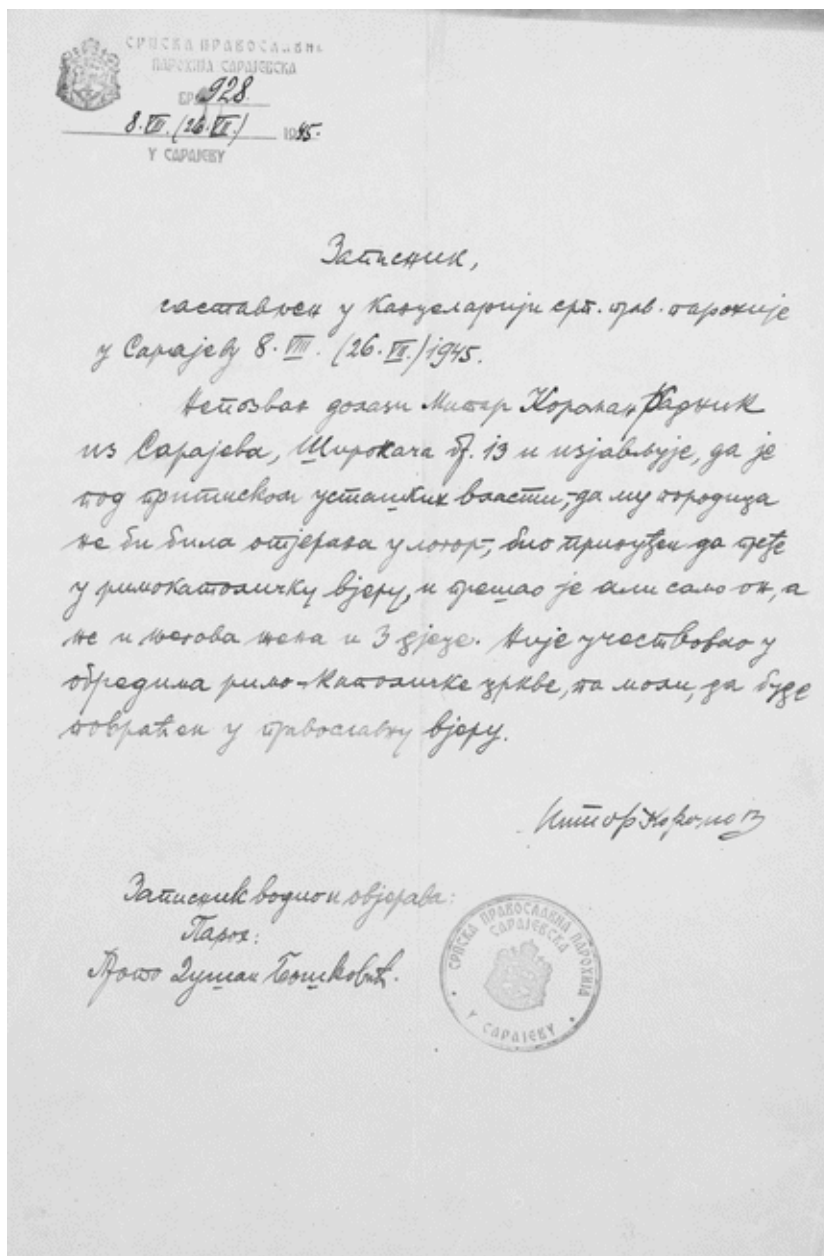 СРПСКА ПРАВОСЛАВНА
ПАРОХИЈА САРАЈЕВСКА
БР. 928.
8. VIII. (26. VII.) 1945.
У САРАЈЕВУ
Записник,
састављен у Канцеларији срп. прав. парохије
у Сарајеву 8. VIII. (26. VII.) 1945.
Непозван долази Митар Кораћ радник
из Сарајева, Широкача бр. 13 и изјављује, да је
под притиском усташких власти,-да му породица
не би била отјерана у логор-, био принуђен да пређе
у римокатоличку вјеру, и прешао је али само он, а
не и његова жена и 3 дјеце. Није учествовао у
обредима римо-католичке цркве, па моли, да буде
повраћен у православну вјеру.
Записник водио и овјерава:
Парох:
Прото Душан Бошковић.
СРПСКА ПРАВОСЛАВНА ПАРОХИЈА
САРАЈЕВСКА
У САРАЈЕВУ